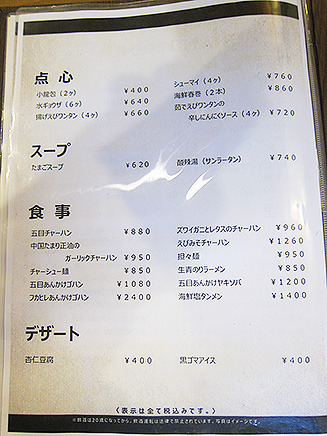 点心
小龍包（2ヶ） ¥400
水ギョウザ（6ヶ） ¥640
揚げえびワンタン（4ヶ） ¥660
シューマイ（4ヶ） ¥760
海鮮春巻（2本） ¥860
茹でえびワンタンの
辛しにんにくソース（4ヶ） ¥720
スープ
たまごスープ ¥620
酸辣湯（サンラータン） ¥740
食事
五目チャーハン ¥880
中国たまり正油の
ガーリックチャーハン ¥950
チャーシュー麺 ¥850
五目あんかけゴハン ¥1080
フカヒレあんかけゴハン ¥2400
ズワイガニとレタスのチャーハン ¥960
えびみそチャーハン ¥1260
担々麺 ¥950
生青のりラーメン ¥850
五目あんかけヤキソバ ¥1200
海鮮塩タンメン ¥1400
デザート
杏仁豆腐 ¥400
黒ゴマアイス ¥400
（表示は全て税込みです。）
※飲酒は20歳になってから。飲酒運転は法律で禁止されています。写真はイメージです。